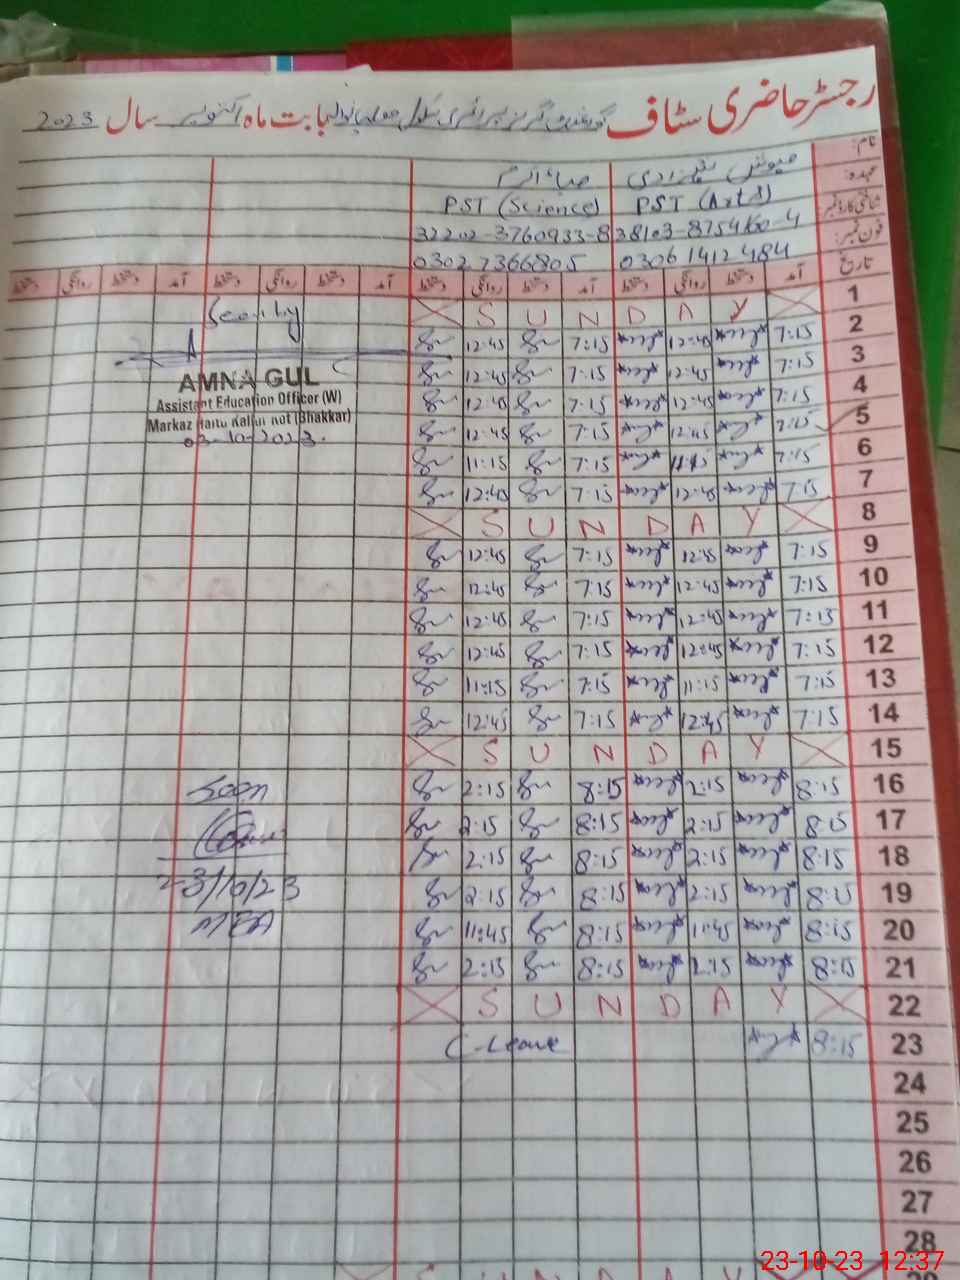 رجسٹر حاضری سٹاف گورنمنٹ گرلز پرائمری سکول بابت ماہ اکتوبر سال 2023
نام:
عہدہ: PST (Arts) PST (Science)
شناختی کارڈ نمبر: 38103-8754160-4 32202-3760933-8
فون نمبر: 0306 1412484 0302 7366805
تاریخ آمد دستخط روانگی دستخط آمد دستخط روانگی دستخط آمد دستخط روانگی دستخط آمد دستخط روانگی دستخط
1 S U N D A Y
2 7:15 12:45 7:15 12:45
3 7:15 12:45 7:15 12:45
4 7:15 12:45 7:15 12:45
5 7:15 12:45 7:15 12:45
6 7:15 11:15 7:15 11:15
7 7:15 12:45 7:15 12:45
8 S U N D A Y
9 7:15 12:45 7:15 12:45
10 7:15 12:45 7:15 12:45
11 7:15 12:45 7:15 12:45
12 7:15 12:45 7:15 12:45
13 7:15 11:15 7:15 11:15
14 7:15 12:45 7:15 12:45
15 S U N D A Y
16 8:15 2:15 8:15 2:15
17 8:15 2:15 8:15 2:15
18 8:15 2:15 8:15 2:15
19 8:15 2:15 8:15 2:15
20 8:15 11:45 8:15 11:45
21 8:15 2:15 8:15 2:15
22 S U N D A Y
23 8:15 C-Leave
24
25
26
27
28
S U N D A Y
Seen by
AMNA GUL
Assistant Education Officer (W)
Markaz Kallur Kot (Bhakkar)
03-10-2023.
Seen
23/10/23
MEA
23-10-23 12:37